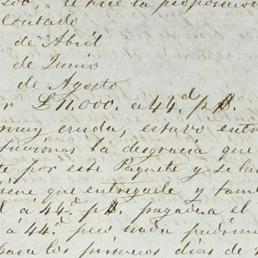 te hice la proposicion
Contado
de Abril
de Junio
de Agosto
£11.000. a 44.d p $.
muy cruda, estuvo entre
la desgracia que
te por este Paquete y se la
tiene que entregarle y tam
l a 44.d p $. pagadera el
a 44.d pero nada pudimos
para los primeros dias de